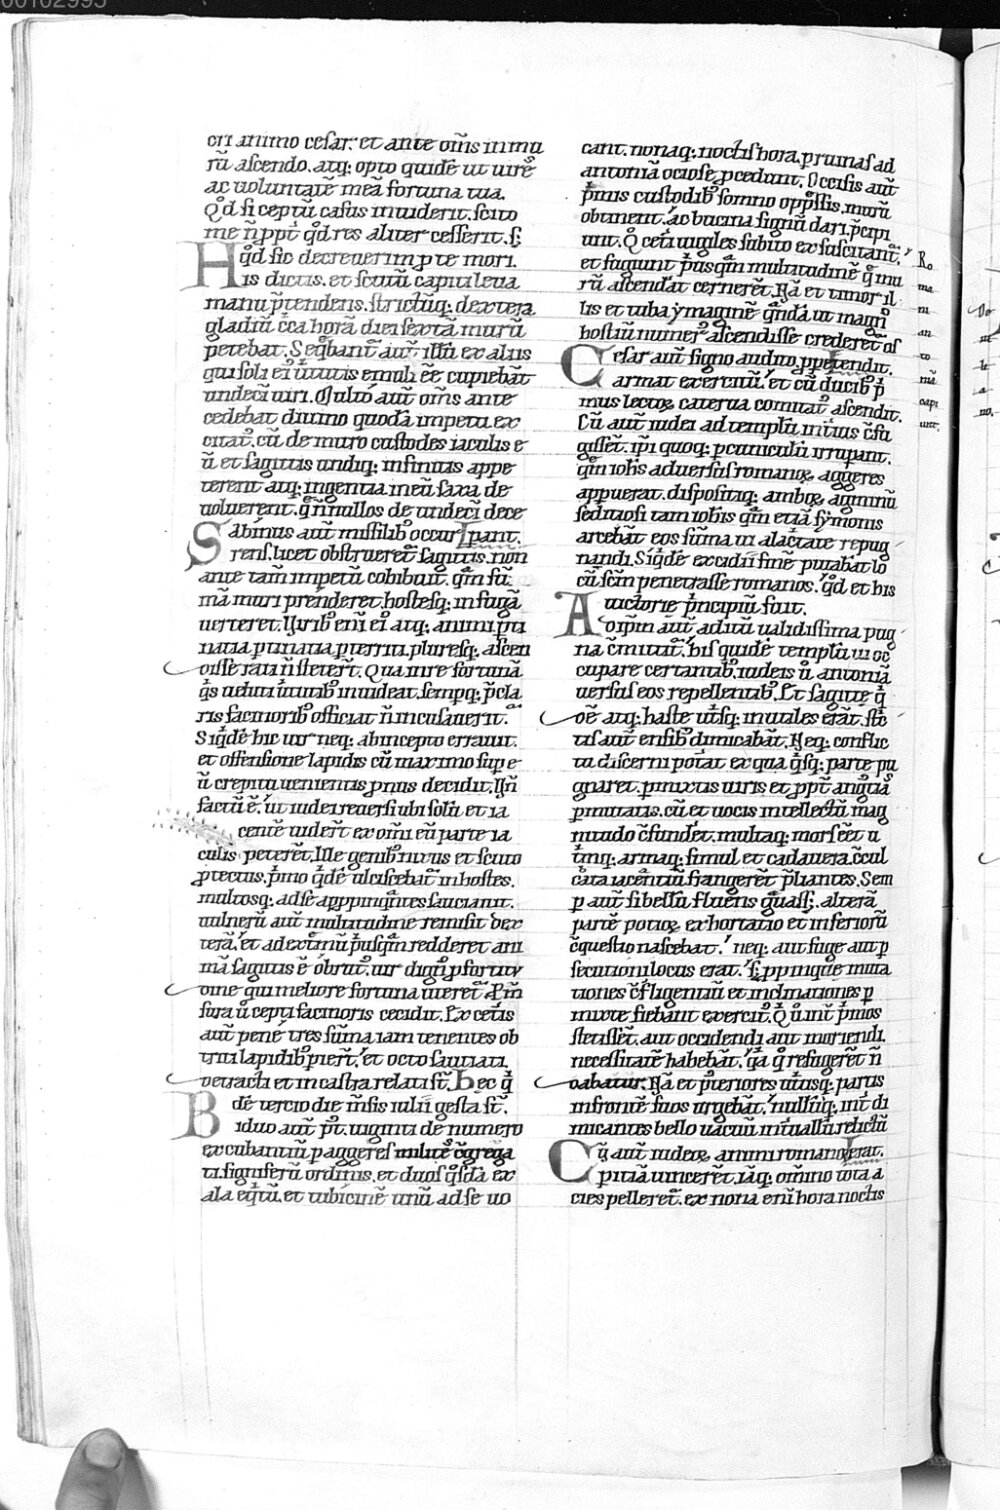 00102995
ori animo cesar. et ante om̄s in mu
rū ascendo. atq; opto quidē ut uirē
ac uoluntatē meā fortuna tua.
Qd si ceptū casus inuiderit. scito
me n̄ ppt qd res aliter cesserit. s;
qd sic decreuerim p te mori.
His dictis. et scutū capiti leua
manu p̄tendens. strictūq; dextera
gladiū c̄ca horā diei sextā murū
petebat. Seq̄bant̄ aut̄ illū ex aliis
qui soli ei ūtutis emuli eē cupiebāt
undeci uiri. Multo aut̄ om̄s ante
cedebat diuino quodā impetu ex
citat᾿. cū de muro custodes iaculis e
ū et sagittis undiq; infinitis appe
terent atq; ingentia in eū saxa de
uoluerent. q̄ n̄nullos de undeci dece
Sabinus aut̄ missilib᾿ occur pant.
rens. licet obstrueret̄ sagittis. non
ante tam̄ impetū cohibuit. q̄m sū
mā muri prenderet. hostesq; in fugā
uerteret. Virib᾿ eni ei᾿ atq; animi p̄ti
natia p̄tinatia p̄territi. pluresq; ascen
disse rati n̄ stetert̄. Qua in re fortunā
q̄s ueluti ūtutib᾿ inuideat. sempq; p̄cla
ris facinorib᾿ officiat n̄ incusauerit.
Siqdē hic uir neq; ab incepto errauit.
et offensione lapidis cū maximo sup e
ū crepitu uenientis pnus decidit. Vn̄
factū ē. ut iudei reuersi ubi solū et ia
centē uidert̄ ex om̄i eū parte ia
culis peterēt. Ille genib᾿ nixus et scuto
ptectus. p̄mo qdē ulciscebat̄ in hostes.
multosq; ad se apppinq̄ntes sauciauit.
uulnerū aut̄ multitudine remisit dex
terā. et ad extmū p̄usq̄m redderet ani
mā sagittis ē obrut᾿. uir dign᾿ p fortitu
dine qui meliore fortuna uteret̄. P̄m
sura ū cepti facinoris cecidit. Ex cetis
aut̄ pene tres sūma iam tenentes ob
triti lapidib᾿ piert̄. et octo sauciati.
detracti et in castra relati st̄. Hec q̄
dē tercio die m̄sis iulii gesta st̄.
Biduo aut̄ p᾿t. uiginti de numero
excubantiū p aggeres milite c̄grega
ti. signiferū ordinis. et duos q᾿sdā ex
ala eq̄tū. et tubicinē unū ad se uo
cant. nonaq; noctis hora. p ruinas ad
antoniā ociose pcedunt. Occisis aut̄
p̄mis custodib᾿ somno opp̄ssis. murū
obtinent. ac bucina signū dari p̄cipi
unt. Q᾿ ceti uigiles subito exsuscitant̄.
et fugiunt p̄usq̄m multitudinē q̄ mu
rū ascendāt cernerēt. Nā et timor il
lis et tuba ymaginē q̄ndā ut magn᾿
hostiū numer᾿ ascendisse crederet̄ as
Cesar aut̄ signo audito. ppe tendit.
armat exercitū. et cū ducib᾿ p̄
mus lectoꝝ caterua comitat᾿ ascendit.
Cū aut̄ iudei ad templū inti᾿ c̄fu
gissēt. ipi quoq; p cuniculū irrupant.
q̄m iohs aduersus romanoꝝ aggeres
appuerat. dispositiq; amboꝝ agminū
seditiosi tam iohis q̄m etiā symonis
arcebāt eos sūma ui alac̄tate repug
nandi. Siqdē excidii finē putabāt lo
cū sc̄m penetrasse romanos. qd et his
uictorie p̄ncipiū fuit.
Ad ipm̄ aut̄ aditū ualidissima pug
na c̄mittit̄. his quidē templū ui oc
cupare certantib᾿. iudeis ū antoniā
uersus eos repellentib᾿. Et sagitte q̄
dē atq; haste utsq; inutiles erāt. stc
tis aut̄ ensib᾿ dimicabāt. Neq; conflic
tu discerni potat ex qua q̄sq; parte pu
gnaret. pmixtis uiris et ppt angtiā
pmutatis. cū et uocis intellectū mag
nitudo c̄funderet. multaq; mors eēt u
t̄mq; armaq; simul et cadauera. c̄cul
cata iacentiū frangerēt p̄liantes. Sem
p aut̄ si bellū fluens q̄uass; alterā
partē potioꝝ exhortatio et inferiorū
c̄questio nascebat̄. neq; aut fuge aut p
secutioni locus erat. s; ppinque muta
tiones c̄fligentiū et inclinationes p
mixte fiebant exercit᾿. Q᾿ ū int̄ p̄mos
stetissēt. aut occidendi aut moriendi.
necessitatē habebāt. q̄a q᾿ refugerēt n̄
dabatur. Nā et p̄teriores utiusq; partis
in fronte suos urgebāt. nullūq; int̄ di
micantes bello uacuū int̄uallū relictū
Cū aut̄ iudeoꝝ animi romanoꝝ erat.
pitiā uincerēt. iāq; om̄ino tota a
cies pelleret̄. ex nona eni hora noctis
Ro
ma
ni
an
to
niā
capi
unt.